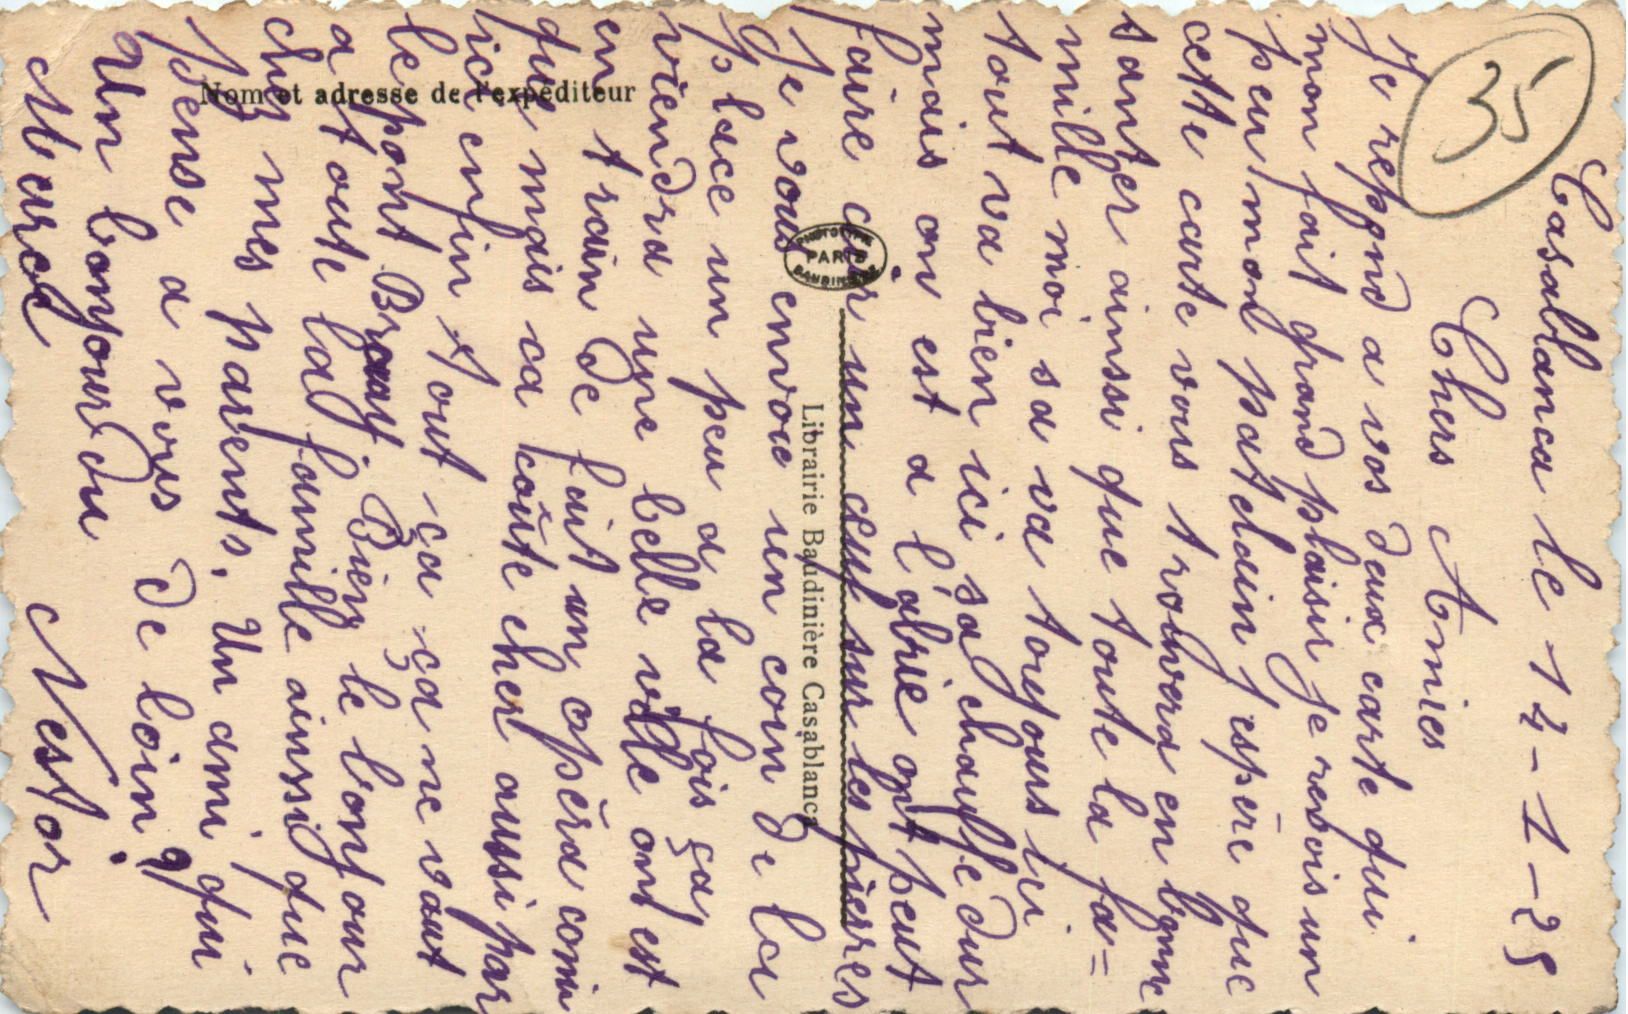 Casablanca le 14-1-25
Chers Amies
Je repond a vos deux carte qui
mon fait grand plaisir je revois un
peu mon patelain j'espère que
cette carte vous trouvera en bonne
santer ainsi que toute la fa=
mille moi sa va toujours ici
tout va bien ici sa chauffe dur
mais on est a l'abrie ont peut
faire cuir un œuf sur les pierres
Je vous envoie un coin de la
place un peu a la fois ça
viendra une belle ville ont est
en train de fait un opéra comi
que mais ca coûte cher aussi par
ici enfin tout ça ça ne vaut
le pont Bien le bonjour
a toute la famille ainsi que
chez mes parents. Un ami qui
pense a vous de loin
Un bonjour du
Maroc Nestor
35
Nom et adresse de l'expéditeur
PHOTOTYPIE
PARIS
BAUDINIÈRE
Librairie Baudinière Casablanca